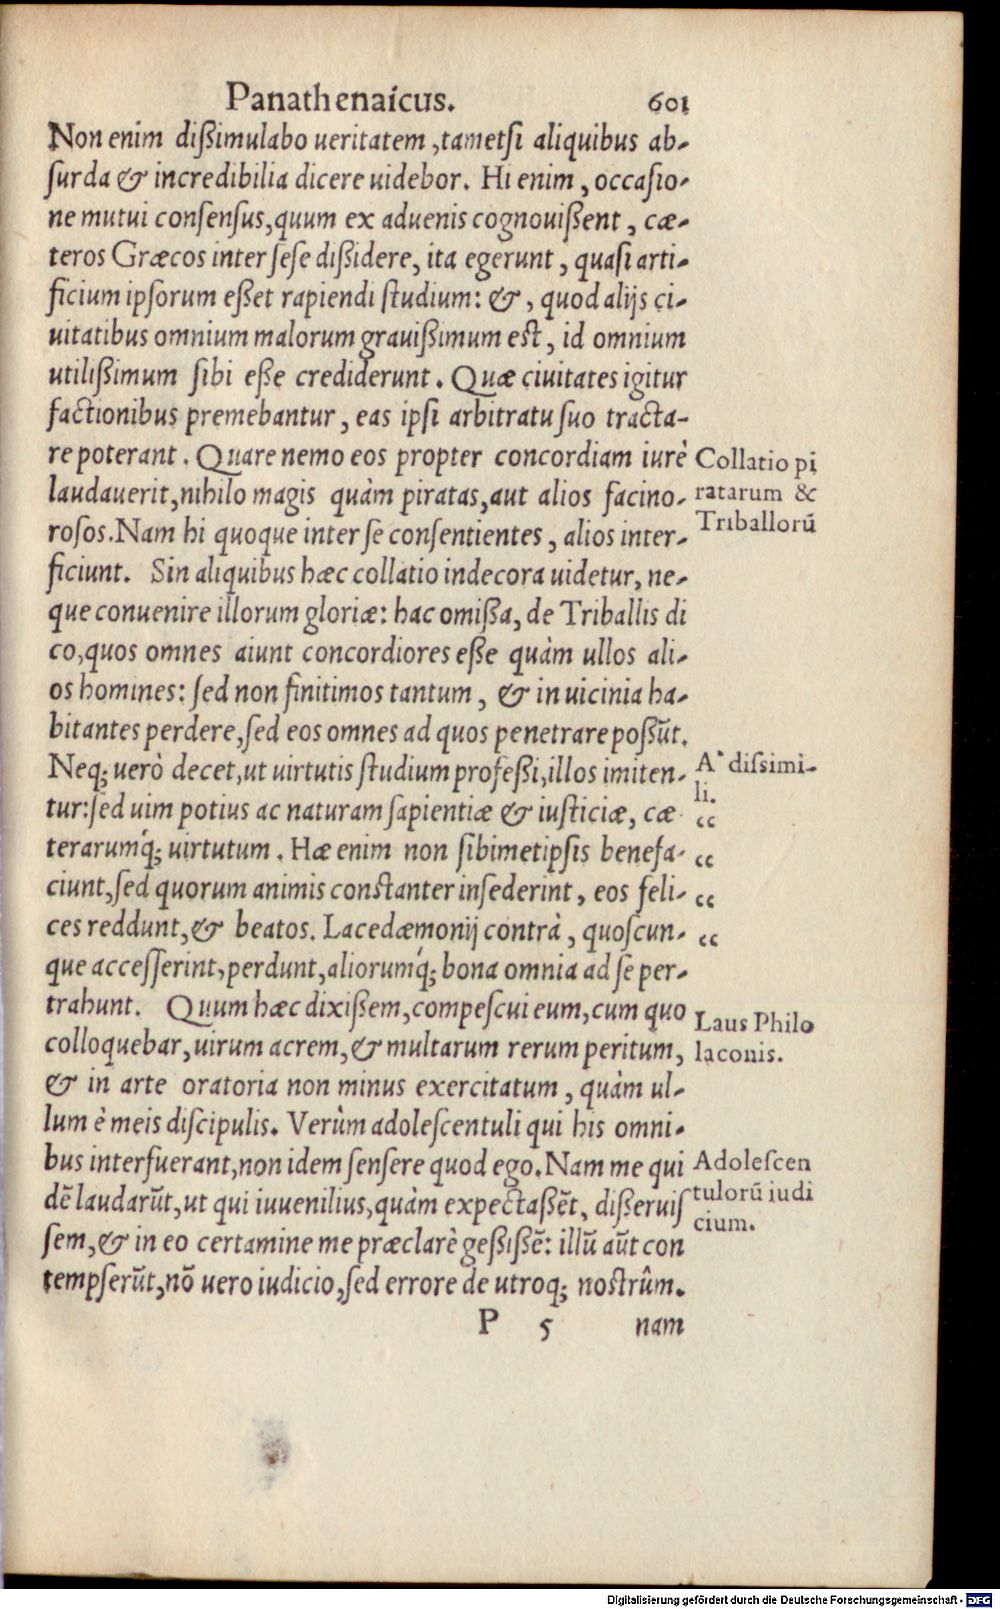 Panathenaicus. 601
Non enim dißimulabo ueritatem, tametsi aliquibus ab-
surda & incredibilia dicere uidebor. Hi enim, occasio-
ne mutui consensus, quum ex aduenis cognouißent, cæ-
teros Græcos inter sese dißidere, ita egerunt, quasi arti-
ficium ipsorum eßet rapiendi studium: &, quod alijs ci-
uitatibus omnium malorum grauißimum est, id omnium
utilißimum sibi eße crediderunt. Quæ ciuitates igitur
factionibus premebantur, eas ipsi arbitratu suo tracta-
re poterant. Quare nemo eos propter concordiam iurè
laudauerit, nihilo magis quàm piratas, aut alios facino-
rosos. Nam hi quoque inter se consentientes, alios inter-
ficiunt. Sin aliquibus hæc collatio indecora uidetur, ne-
que conuenire illorum gloriæ: hac omißa, de Triballis di
co, quos omnes aiunt concordiores eße quàm ullos ali-
os homines: sed non finitimos tantum, & in uicinia ha-
bitantes perdere, sed eos omnes ad quos penetrare poßūt.
Neq; uerò decet, ut uirtutis studium profeßi, illos imiten-
tur: sed uim potius ac naturam sapientiæ & iusticiæ, cæ
terarumq́; uirtutum. Hæ enim non sibimetipsis benefa-
ciunt, sed quorum animis constanter insederint, eos feli-
ces reddunt, & beatos. Lacedæmonij contrà, quoscun-
que accesserint, perdunt, aliorumq́; bona omnia ad se per-
trahunt. Quum hæc dixißem, compescui eum, cum quo
colloquebar, uirum acrem, & multarum rerum peritum,
& in arte oratoria non minus exercitatum, quàm ul-
lum è meis discipulis. Verùm adolescentuli qui his omni-
bus interfuerant, non idem sensere quod ego. Nam me qui
dē laudarūt, ut qui iuuenilius, quàm expectaßēt, dißeruis
sem, & in eo certamine me præclarè geßißē: illū aūt con
tempserūt, nō uero iudicio, sed errore de utroq; nostrûm.
P 5 nam
Collatio pi
ratarum &
Triballorū
A' dissimi-
li.
“
“
“
“
Laus Philo
laconis.
Adolescen
tulorū iudi
cium.
Digitalisierung gefördert durch die Deutsche Forschungsgemeinschaft - DFG